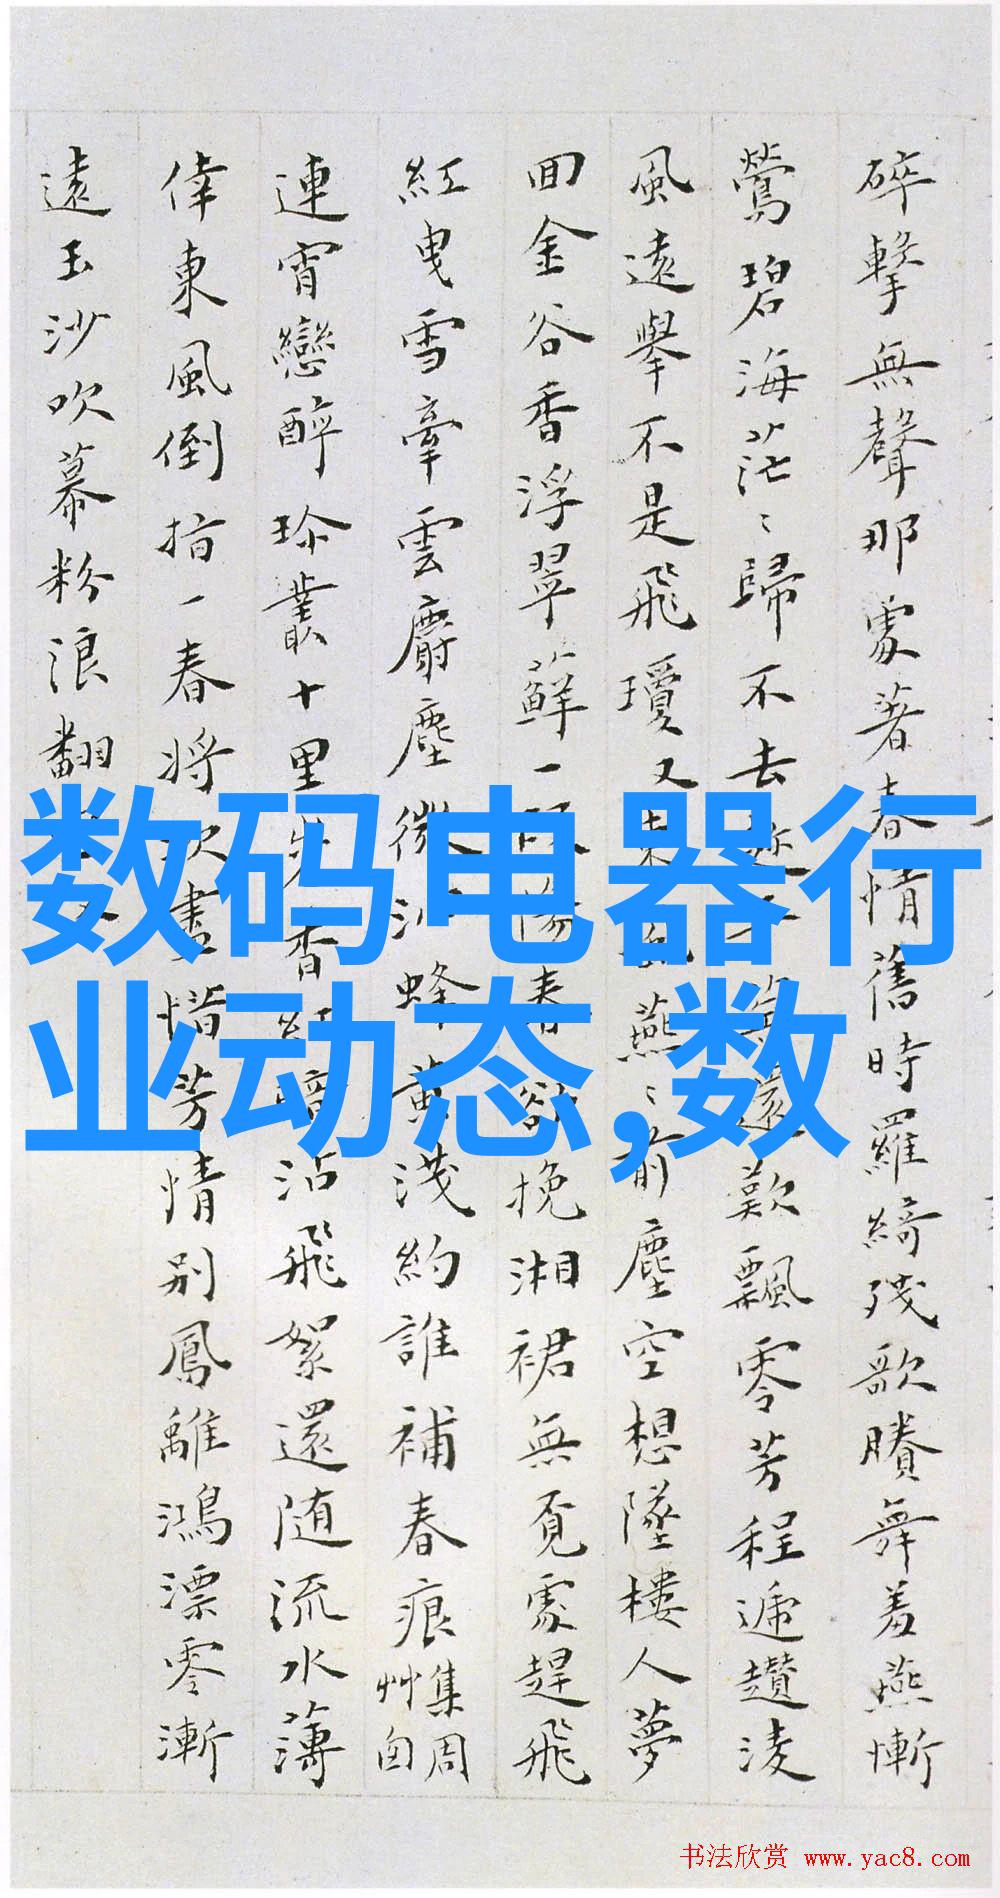 碎擊無聲那處著春情舊時羅綺殘歌賸舞羞燕慚
鶯碧海茫〻歸不去
還歎飄零芳程遞趲淩
風遠舉不是飛瓊又
燕〻前塵空想墜樓人夢
回金谷香浮翠蘚一
春欲挽湘裙無覓處趕飛
紅曳雪牽雲麝塵微
蜂黃淺約誰補春痕集周
艸囪
連宵戀醉珍叢十里
香
沾飛絮還随流水薄
倖東風倒指一春將次盡惜芳情別鳳離鴻漂零漸
遠玉沙吹幕粉浪翻
数码电器行
业动态,数
书法欣赏 www.yac8.com